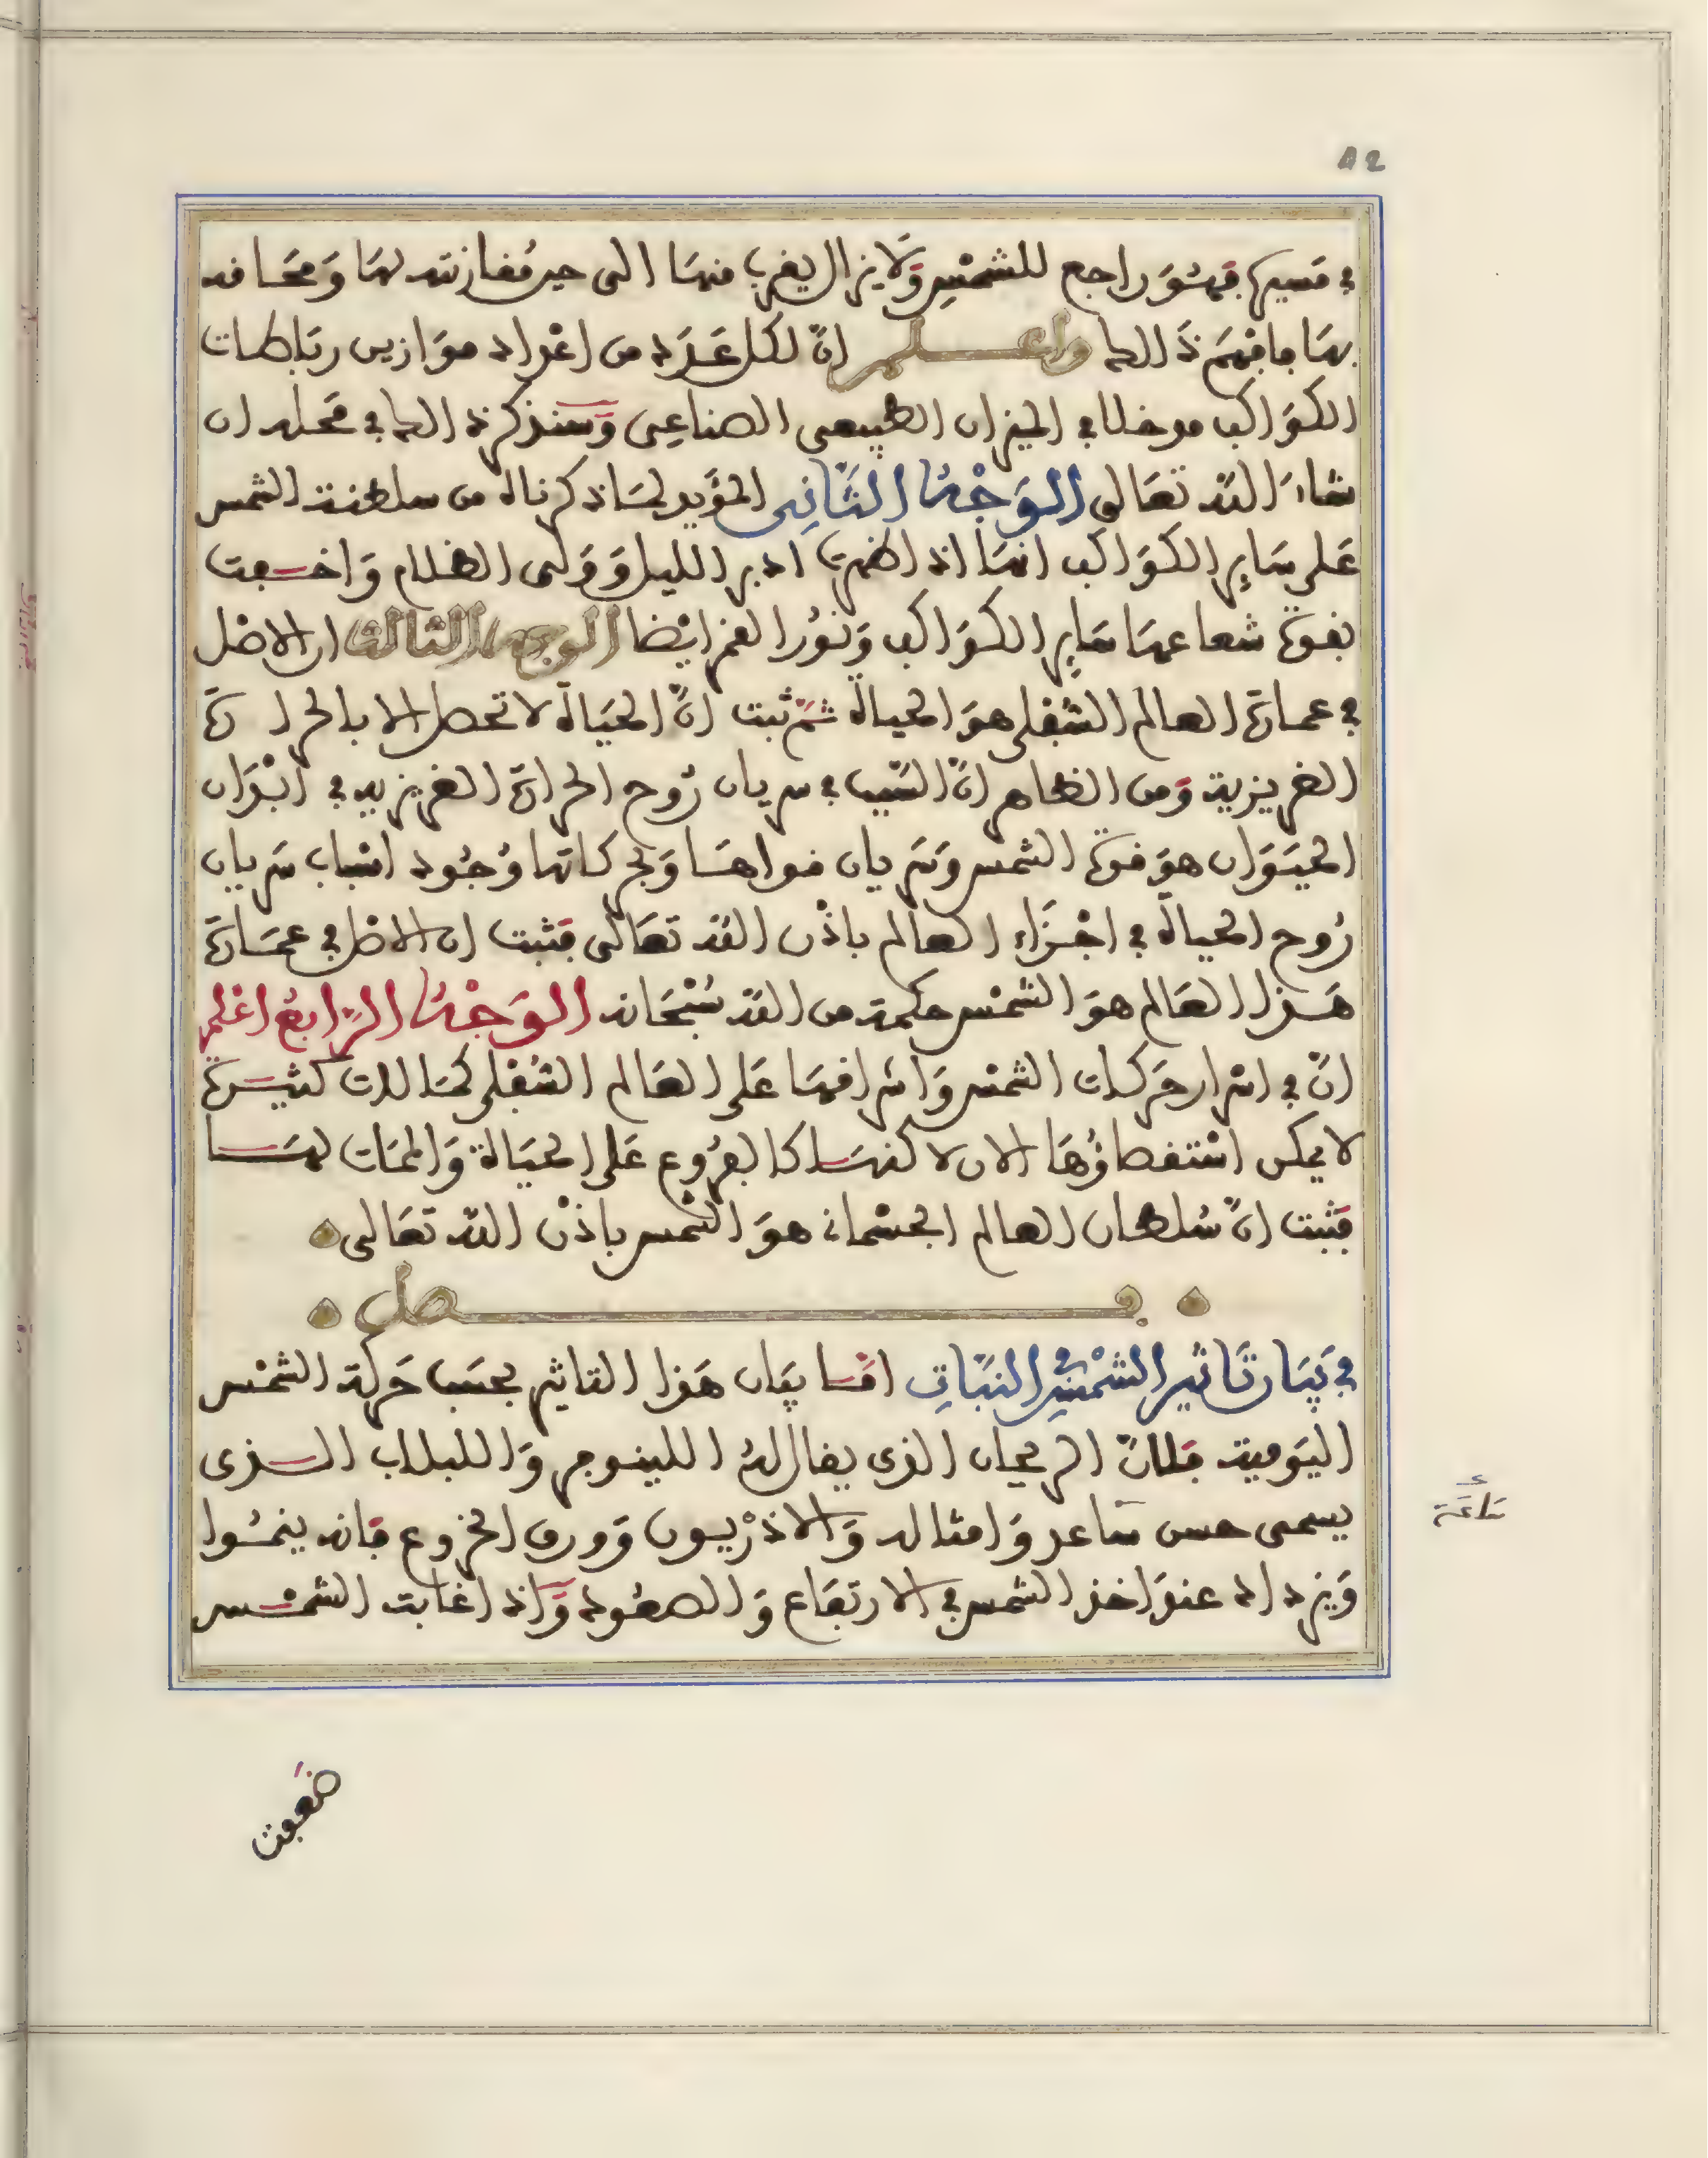 82
في مسيرها فهو راجع للشمس ولا يزال يقرب منها الى حين مقارنته لها ومحاقه
بها فافهم ذالك واعلم ان لكل عدد من اعداد موازين رباطات
الكواكب مدخلا في الميزان الطبيعي الصناعي وسنذكر ذالك في محله ان
شاء الله تعالى الوجه الثاني المؤيد لما ذكرناه من سلطنة الشمس
على ساير الكواكب انها اذا ظهرت ادبر الليل وولى الظلام واختفت
بقوة شعاعها ساير الكواكب ونور القمر ايضا الوجه الثالث ان الاصل
في عمارة العالم السفلي هو الحياة ثم ثبت ان الحياة لا تحصل الا بالحرارة
الغريزية ومن الظاهر ان السبب في سريان روح الحرارة الغريزية في ابدان
الحيوان هو قوة الشمس وسريان قواها وبحركاتها وجود اسباب سريان
روح الحياة في اجزاء العالم باذن الله تعالى فثبت ان الاصل في عمارة
هذا العالم هو الشمس حكمة من الله سبحانه الوجه الرابع اعلم
ان في اسرار حركات الشمس واشراقها على العالم السفلي كمالات كثيرة
لا يمكن استقصاؤها الان لاكنها كالفروع على الحياة والممات لها
فثبت ان سلطان العالم الجسماني هو الشمس باذن الله تعالى
فصل
في بيان تاثير الشمس في النبات اما بيان هذا التاثير بحسب حركة الشمس
اليومية فلان الريحان الذي يقال له اللينوفر واللبلاب الذي
يسمى حسن ساعد وامثاله والاذريون وورق الخروع فانه ينموا
ساعة
ويزداد عند اخذ الشمس في الارتفاع والصعود واذا غابت الشمس
ضعفت